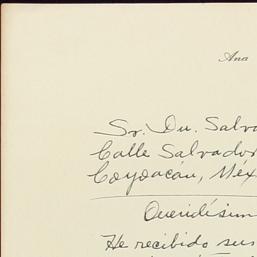 Ana
Sr. Du. Salva
Calle Salvador
Coyoacán, Méx
Queridísim
He recibido sus